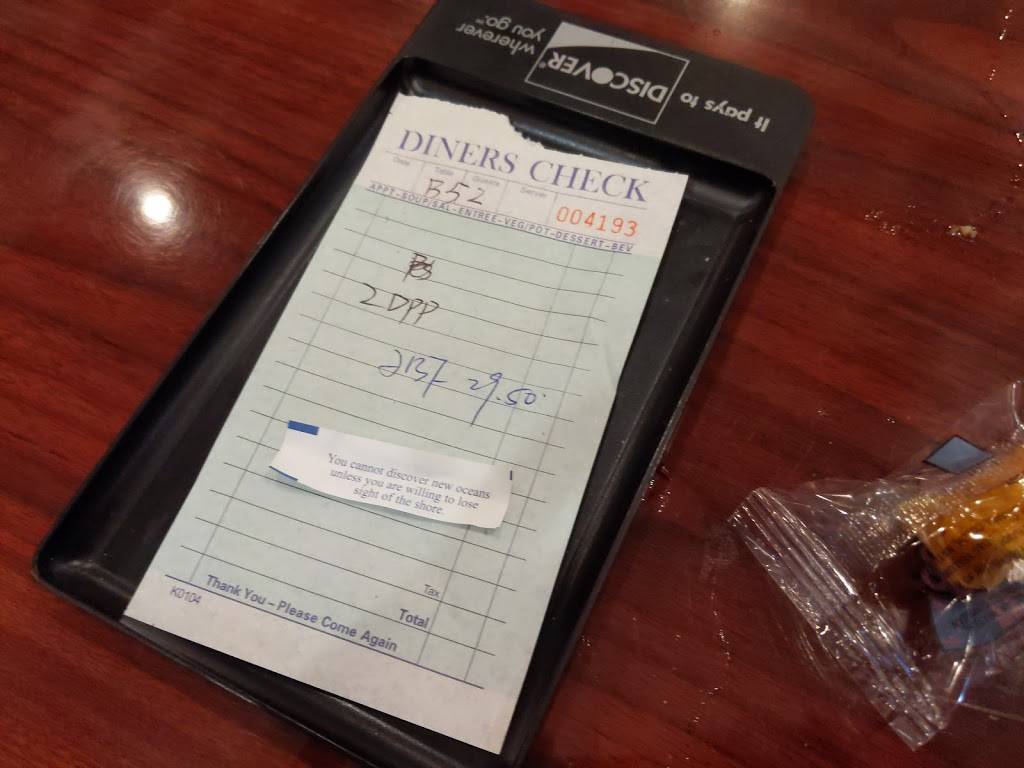 It pays to DISCOVER® wherever
you go.™
DINERS CHECK
Date Table Guests Server
B52
004193
APPT-SOUP/SAL-ENTREE-VEG/POT-DESSERT-BEV
2 DPP
2BF 29.50
You cannot discover new oceans
unless you are willing to lose
sight of the shore.
Tax
Total
Thank You – Please Come Again
K0104